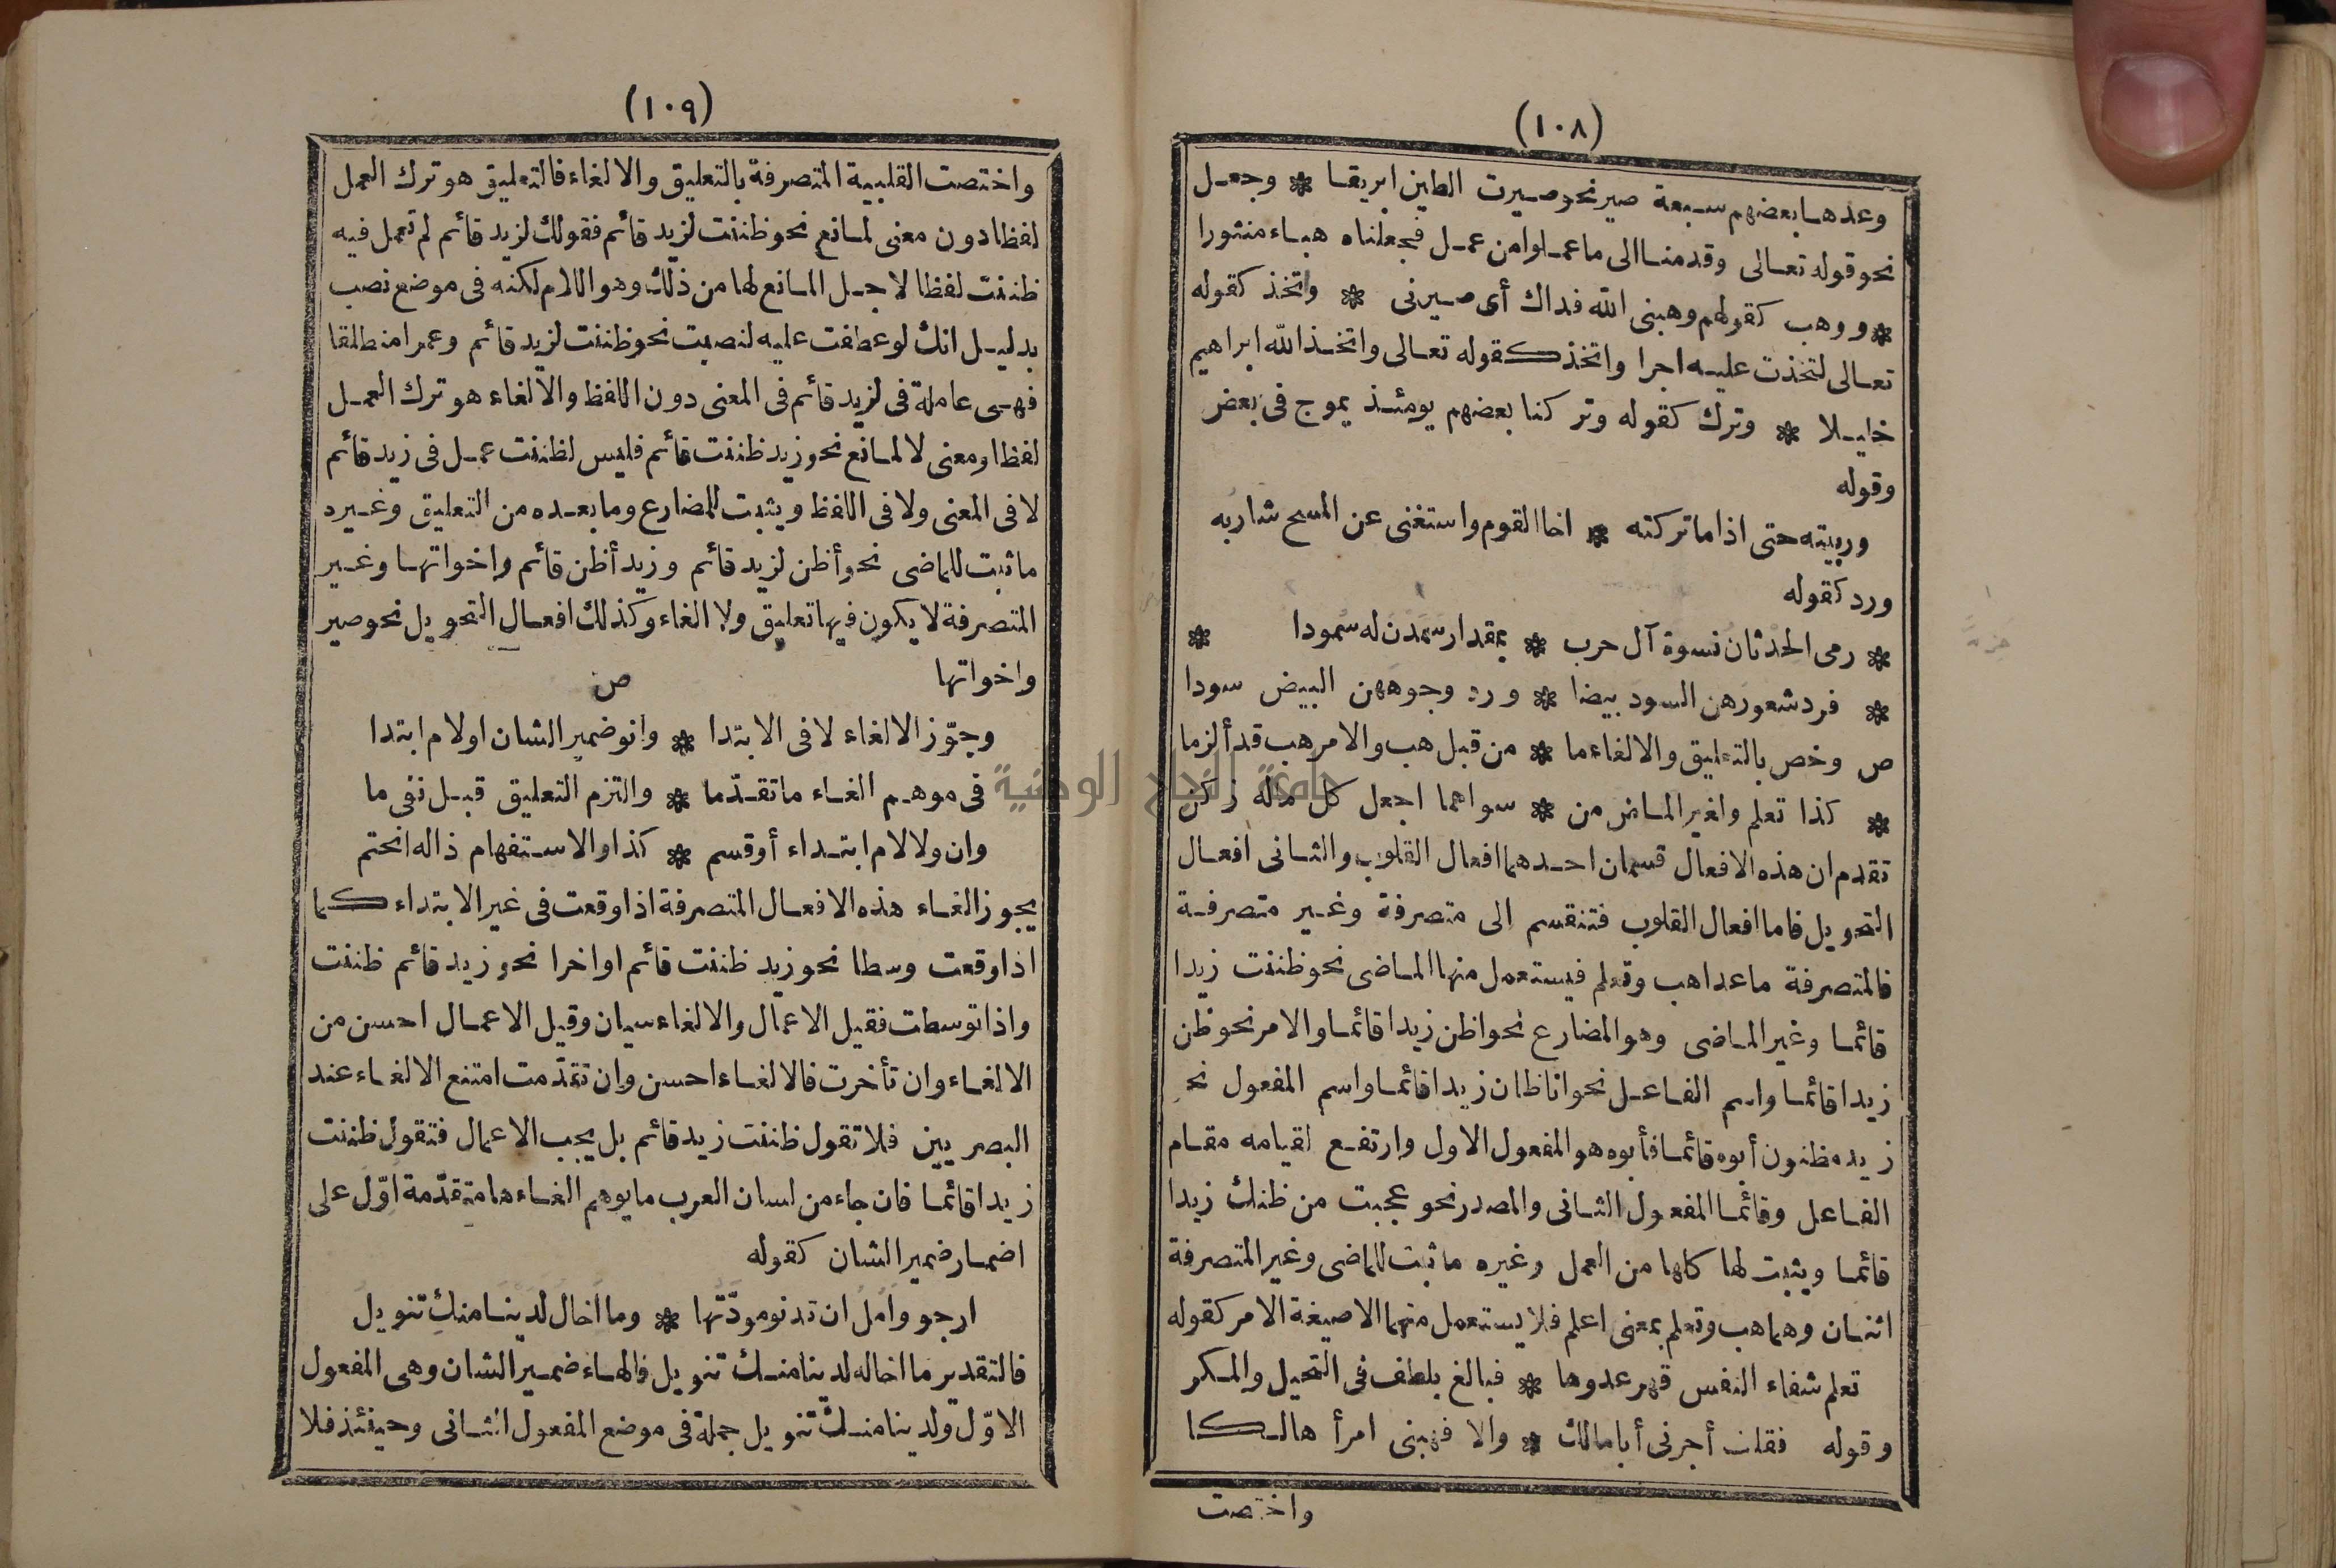 (١٠٨)
وعدها بعضهم سبعة صير نحو صيرت الطين ابريقا * وجعل
نحو قوله تعالى وقدمنا الى ما عملوا من عمل فجعلناه هباء منثورا
* ووهب كقولهم وهبنى الله فداك أى صيرنى * واتخذ كقوله
تعالى لتخذت عليه اجرا واتخذ كقوله تعالى واتخذ الله ابراهيم
خليلا * وترك كقوله وتركنا بعضهم يومئذ يموج فى بعض
وقوله
وربيته حتى اذا ما تركته * اخا القوم واستغنى عن المسح شاربه
ورد كقوله
* رمى الحدثان نسوة آل حرب * بمقدار سمدن له سمودا *
* فرد شعورهن السود بيضا * ورد وجوههن البيض سودا
ص وخص بالتعليق والالغاء ما * من قبل هب والامر هب قد ألزما
* كذا تعلم ولغير الماض من * سواهما اجعل كل ماله زكن
تقدم ان هذه الافعال قسمان احدهما افعال القلوب والثانى افعال
التحويل فاما افعال القلوب فتنقسم الى متصرفة وغير متصرفة
فالمتصرفة ما عدا هب وتعلم فيستعمل منها الماضى نحو ظننت زيدا
قائما وغير الماضى وهو المضارع نحو اظن زيدا قائما والامر نحو ظن
زيدا قائما واسم الفاعل نحو انا ظان زيدا قائما واسم المفعول نحو
زيد مظنون أبوه قائما فأبوه هو المفعول الاول وارتفع لقيامه مقام
الفاعل وقائما المفعول الثانى والمصدر نحو عجبت من ظنك زيدا
قائما ويثبت لها كلها من العمل وغيره ما ثبت للماضى وغير المتصرفة
اثنان وهما هب وتعلم بمعنى اعلم فلا يستعمل منهما الا صيغة الامر كقوله
تعلم شفاء النفس قهر عدوها * فبالغ بلطف فى التحيل والمكر
وقوله فقلت أجرنى أبا مالك * والا فهبنى امرأ هالكا
واختصت
(١٠٩)
واختصت القلبية المتصرفة بالتعليق والالغاء فالتعليق هو ترك العمل
لفظا دون معنى لمانع نحو ظننت لزيد قائم فقولك لزيد قائم لم تعمل فيه
ظننت لفظا لاجل المانع لها من ذلك وهو اللام لكنه فى موضع نصب
بدليل انك لو عطفت عليه لنصبت نحو ظننت لزيد قائم وعمرا منطلقا
فهى عاملة فى لزيد قائم فى المعنى دون اللفظ والالغاء هو ترك العمل
لفظا ومعنى لا لمانع نحو زيد ظننت قائم فليس لظننت عمل فى زيد قائم
لا فى المعنى ولا فى اللفظ ويثبت للمضارع وما بعده من التعليق وغيره
ما ثبت للماضى نحو أظن لزيد قائم وزيد أظن قائم واخواتها وغير
المتصرفة لا يكون فيها تعليق ولا الغاء وكذلك افعال التحويل نحو صير
واخواتها ص
وجوّز الالغاء لا فى الابتدا * وانو ضمير الشان او لام ابتدا
فى موهم الغاء ما تقدّما * والتزم التعليق قبل نفى ما
وان ولا لام ابتداء أو قسم * كذا والاستفهام ذا له انحتم
يجوز الغاء هذه الافعال المتصرفة اذا وقعت فى غير الابتداء كما
اذا وقعت وسطا نحو زيد ظننت قائم او اخرا نحو زيد قائم ظننت
واذا توسطت فقيل الاعمال والالغاء سيان وقيل الاعمال احسن من
الالغاء وان تأخرت فالالغاء احسن وان تقدّمت امتنع الالغاء عند
البصريين فلا تقول ظننت زيد قائم بل يجب الاعمال فتقول ظننت
زيدا قائما فان جاء من لسان العرب ما يوهم الغاءها متقدّمة اوّل على
اضمار ضمير الشان كقوله
ارجو وآمل ان تدنو مودّتها * وما اخال لدينا منك تنويل
فالتقدير ما اخاله لدينا منك تنويل فالهاء ضمير الشان وهى المفعول
الاوّل ولدينا منك تنويل جملة فى موضع المفعول الثانى وحينئذ فلا
جامعة النجاح الوطنية